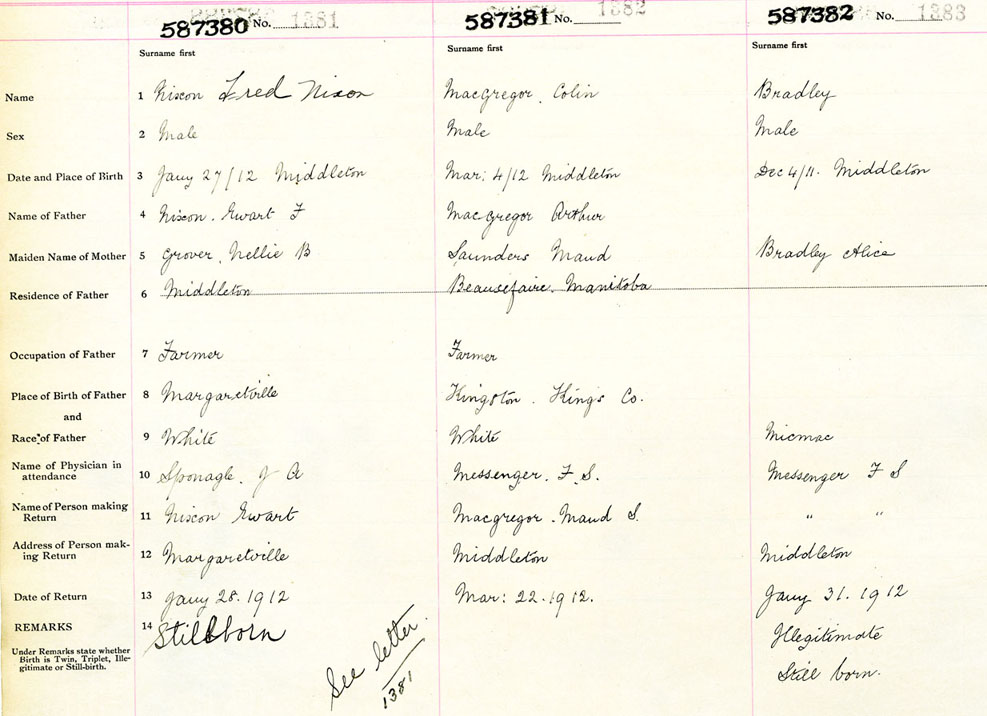 587380 No. 1381 587381 No. 1382 587382 No. 1383
Surname first Surname first Surname first
Name 1 Nixon Fred Nixon MacGregor, Colin Bradley
Sex 2 Male Male Male
Date and Place of Birth 3 Jany 27/12 Middleton Mar: 4/12 Middleton Dec 4/11. Middleton
Name of Father 4 Nixon. Ewart F MacGregor Arthur
Maiden Name of Mother 5 Grover, Nellie B Saunders Maud Bradley Alice
Residence of Father 6 Middleton Beausefaire. Manitoba
Occupation of Father 7 Farmer Farmer
Place of Birth of Father 8 Margaretville Kingston. Kings Co.
and
Race of Father 9 White White Micmac
Name of Physician in
attendance 10 Sponagle. J A Messenger. F. S. Messenger F S
Name of Person making
Return 11 Nixon Ewart Macgregor. Maud S. " "
Address of Person mak-
ing Return 12 Margaretville Middleton Middleton
Date of Return 13 Jany 28. 1912 Mar: 22. 1912. Jany 31. 1912
REMARKS 14 Stillborn See letter. 1381 Illegitimate
Under Remarks state whether
Birth is Twin, Triplet, Ille-
gitimate or Still-birth.
Still born.